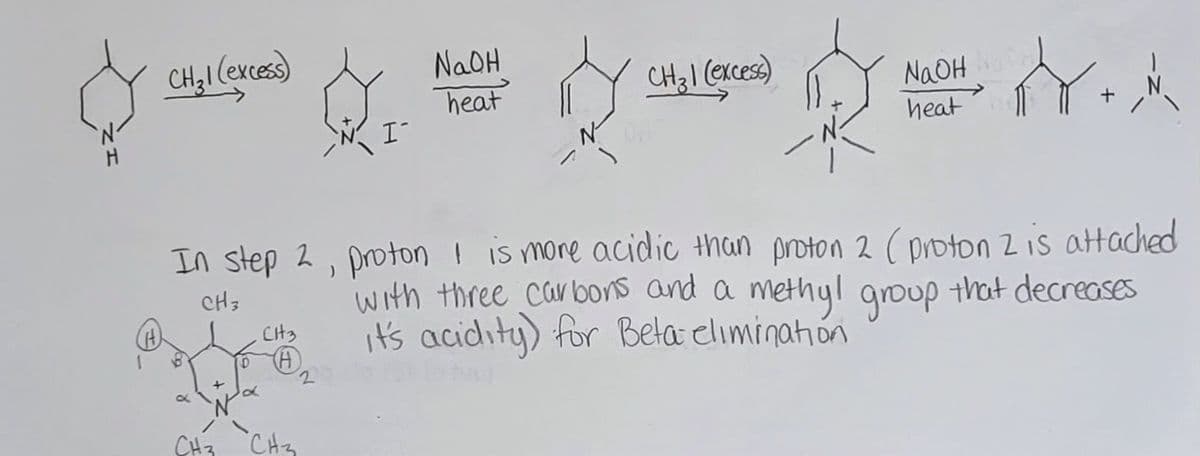 CH3I (excess) NaOH CH3I (excess) NaOH
heat heat
N H N+ I- N N+ + N
In step 2, proton 1 is more acidic than proton 2 (proton 2 is attached
with three carbons and a methyl group that decreases
it's acidity) for Beta-elimination
CH3
H 1 β CH3
β H 2
α + α
N
CH3 CH3